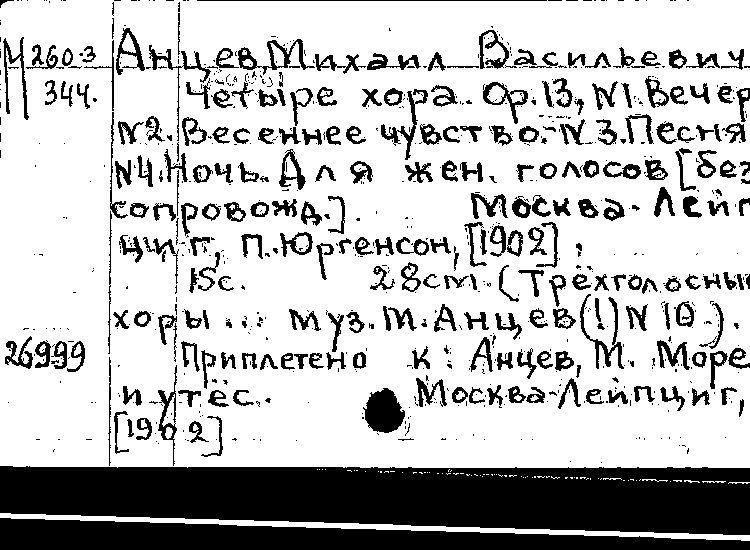 М 260-3 Анцев, Михаил Васильевич
344. Четыре хора. Ор.13, N1. Вечер
N2. Весеннее чувство.-N3. Песня
N4. Ночь. Для жен. голосов [без
сопровожд.]. Москва-Лейп
циг, П.Юргенсон, [1902],
15с. 28cm. (Трёхголосны
хоры... муз. М. Анцев(!) N 10.).
26999 Приплетено к: Анцев, М. Море
и утёс. Москва-Лейпциг,
[1902]